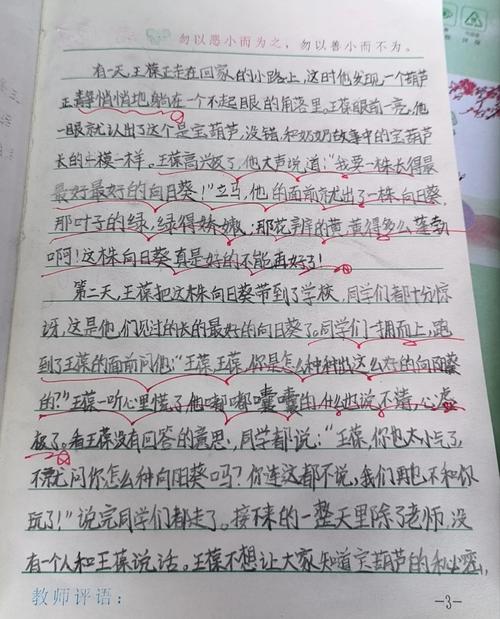 勿以恶小而为之，勿以善小而不为。
有一天，王葆正走在回家的小路上，这时他发现一个葫芦
正静悄悄地躺在一个不起眼的角落里。王葆眼前一亮，他
一眼就认出了这个是宝葫芦，没错，和奶奶故事中的宝葫芦
长的一模一样。王葆高兴极了，他大声说道：“我要一株长得最
最好最好的向日葵！”立马，他的面前就出了一株向日葵，
那叶子的绿，绿得娇嫩；那花瓣的黄，黄得多么蓬勃
啊！这株向日葵真是好的不能再好了！
第二天，王葆把这株向日葵带到了学校，同学们都十分惊
讶，这是他们见过的长的最好的向日葵了。同学们一拥而上，跑
到了王葆的面前问他：“王葆王葆，你是怎么种种出这么好的向阳葵
的？”王葆一听心里慌了，他嘟嘟囊囊的什么也说不清，心虚
极了。看王葆没有回答的意思，同学都说：“王葆，你也太小气了，
不就问你怎么种向阳葵吗？你连这都不说，我们再也不和你
玩了！”说完同学们都走了。接下来的一整天里除了老师，没
有一个人和王葆说话。王葆不想让大家知道宝葫芦的秘密，
教师评语：
-3-